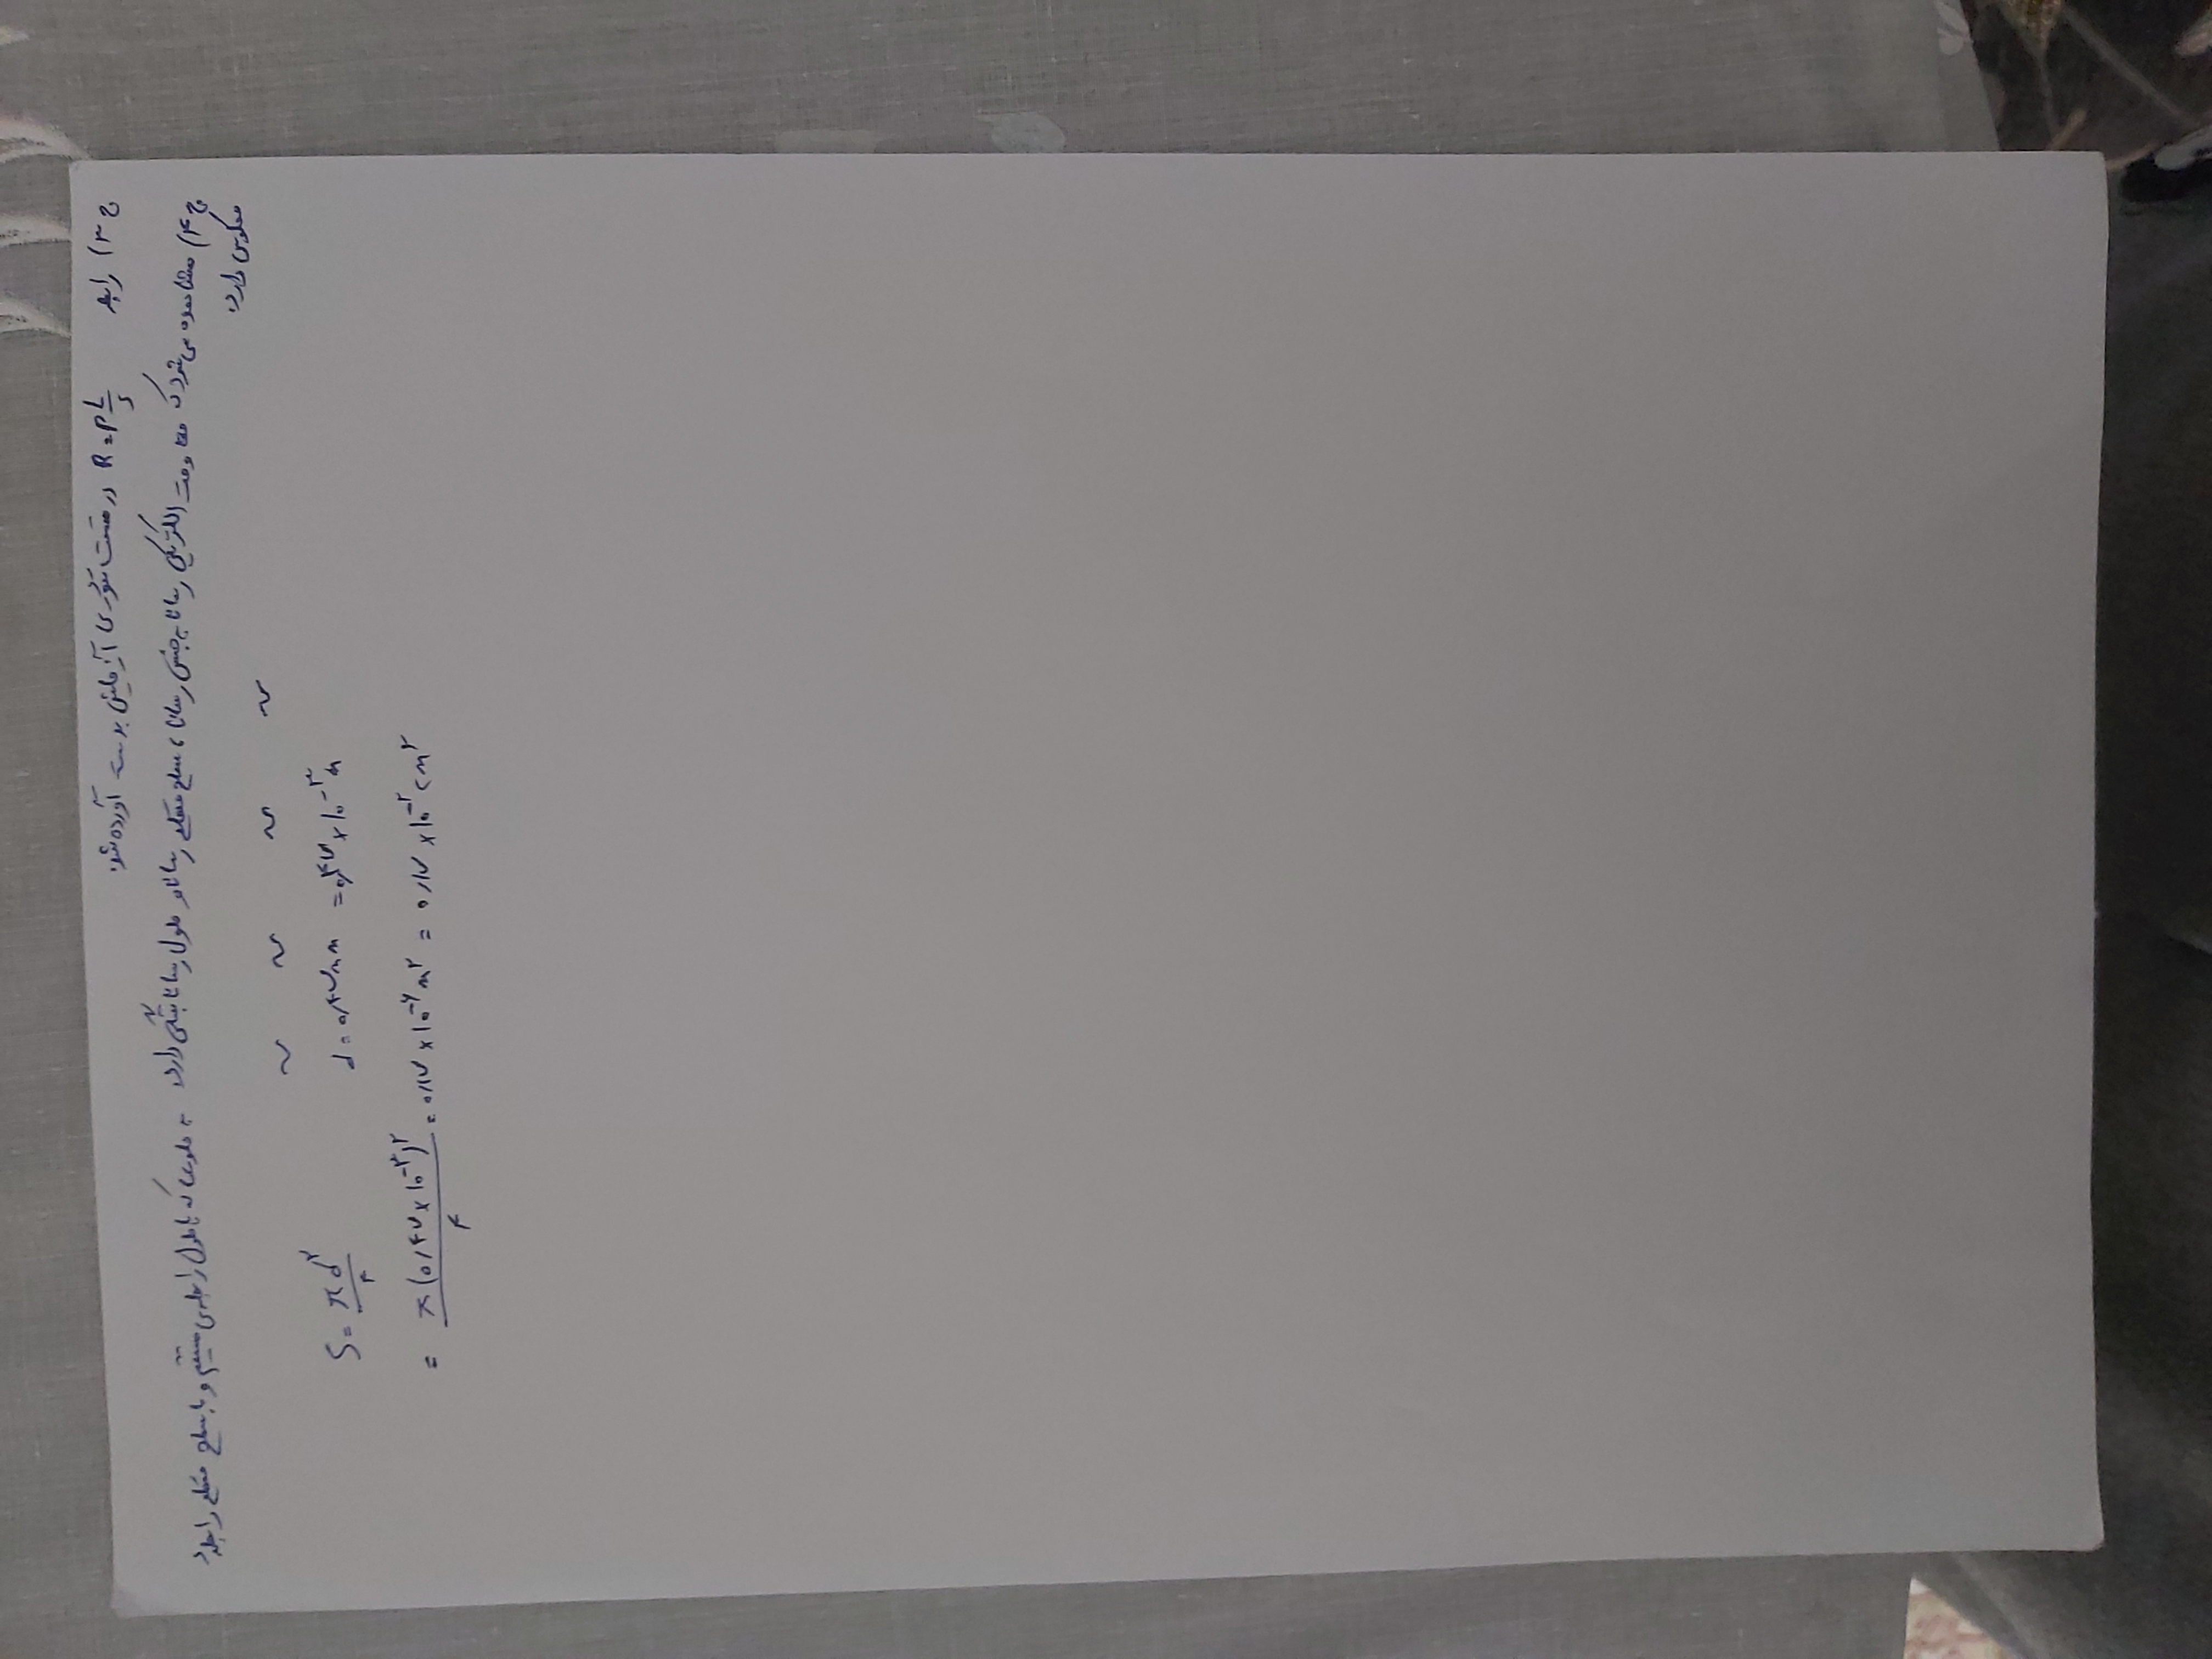 ج ۳) رابطه R = ρ L/S در قسمت تئوری آزمایش بدست آورده شد.
ج ۴) مشاهده می‌شود که مقاومت الکتریکی رسانا به جنس رسانا، سطح مقطع رسانا و طول رسانا بستگی دارد. به طوری که با طول رابطه‌ی مستقیم و با سطح مقطع رابطه
معکوس دارد.
~ ~ ~ ~
S = πd²/۴ d = ۰٫۴۷ mm = ۰٫۴۷ × ۱۰⁻³ m
= π(۰٫۴۷ × ۱۰⁻³)²/۴ = ۰٫۱۷ × ۱۰⁻⁶ m² = ۰٫۱۷ × ۱۰⁻² cm²